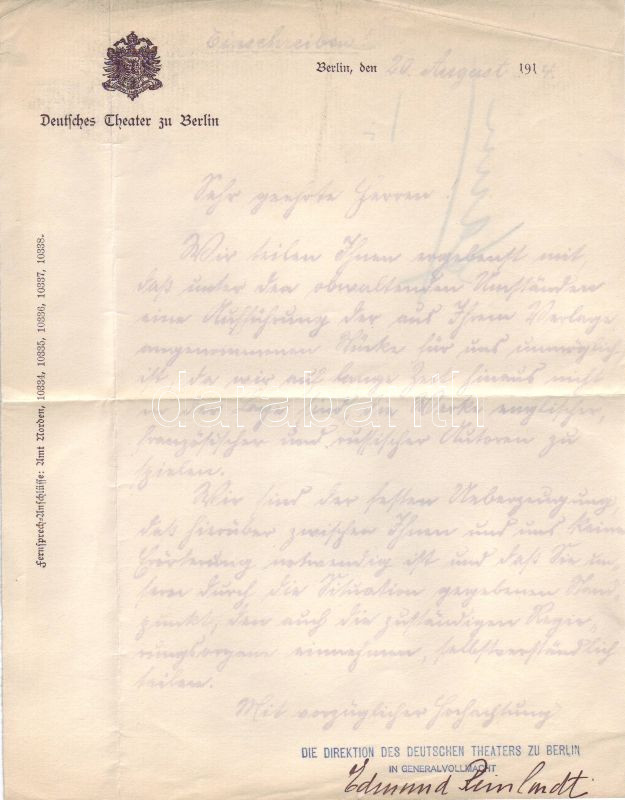 Einschreiben!
Berlin, den 20. August 1914.
Deutsches Theater zu Berlin
Fernsprech-Anschlüsse: Amt Norden, 10334, 10335, 10336, 10337, 10338.
Sehr geehrte Herren!
Wir teilen Ihnen ergebenst mit,
daß unter den obwaltenden Umständen
eine Aufführung der aus Ihrem Verlage
angenommenen Stücke für uns unmöglich
ist, da wir auf lange Zeit hinaus nicht
in der Lage sind die Werke englischer,
französischer und russischer Autoren zu
spielen.
Wir sind der festen Ueberzeugung,
daß hierüber zwischen Ihnen und uns keine
Erörterung notwendig ist und daß Sie un-
seren durch die Situation gegebenen Stand-
punkt, den auch die zuständigen Regie-
rungsorgane einnehmen, selbstverständlich
teilen.
Mit vorzüglicher Hochachtung
DIE DIREKTION DES DEUTSCHEN THEATERS ZU BERLIN
IN GENERALVOLLMACHT
Edmund Reinhardt
darabanth